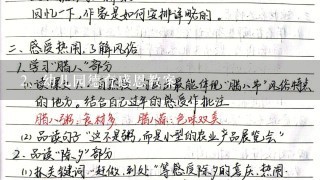 回忆一下,作家是如何安排详略的。
二、感受热闹,了解风俗
1、学习“腊八”部分
(1)读课文
出最能体现“腊八节”风俗特点
的地方。结合自己过年的感受作批注
腊八粥:食材多 腊八蒜:色味双美
(2)品读句子“这不是粥,而是小型的农业产品展览会”
2、品读“除夕”部分
(1)抓关键词“赶做、到处”等感受除夕的喜庆、热闹